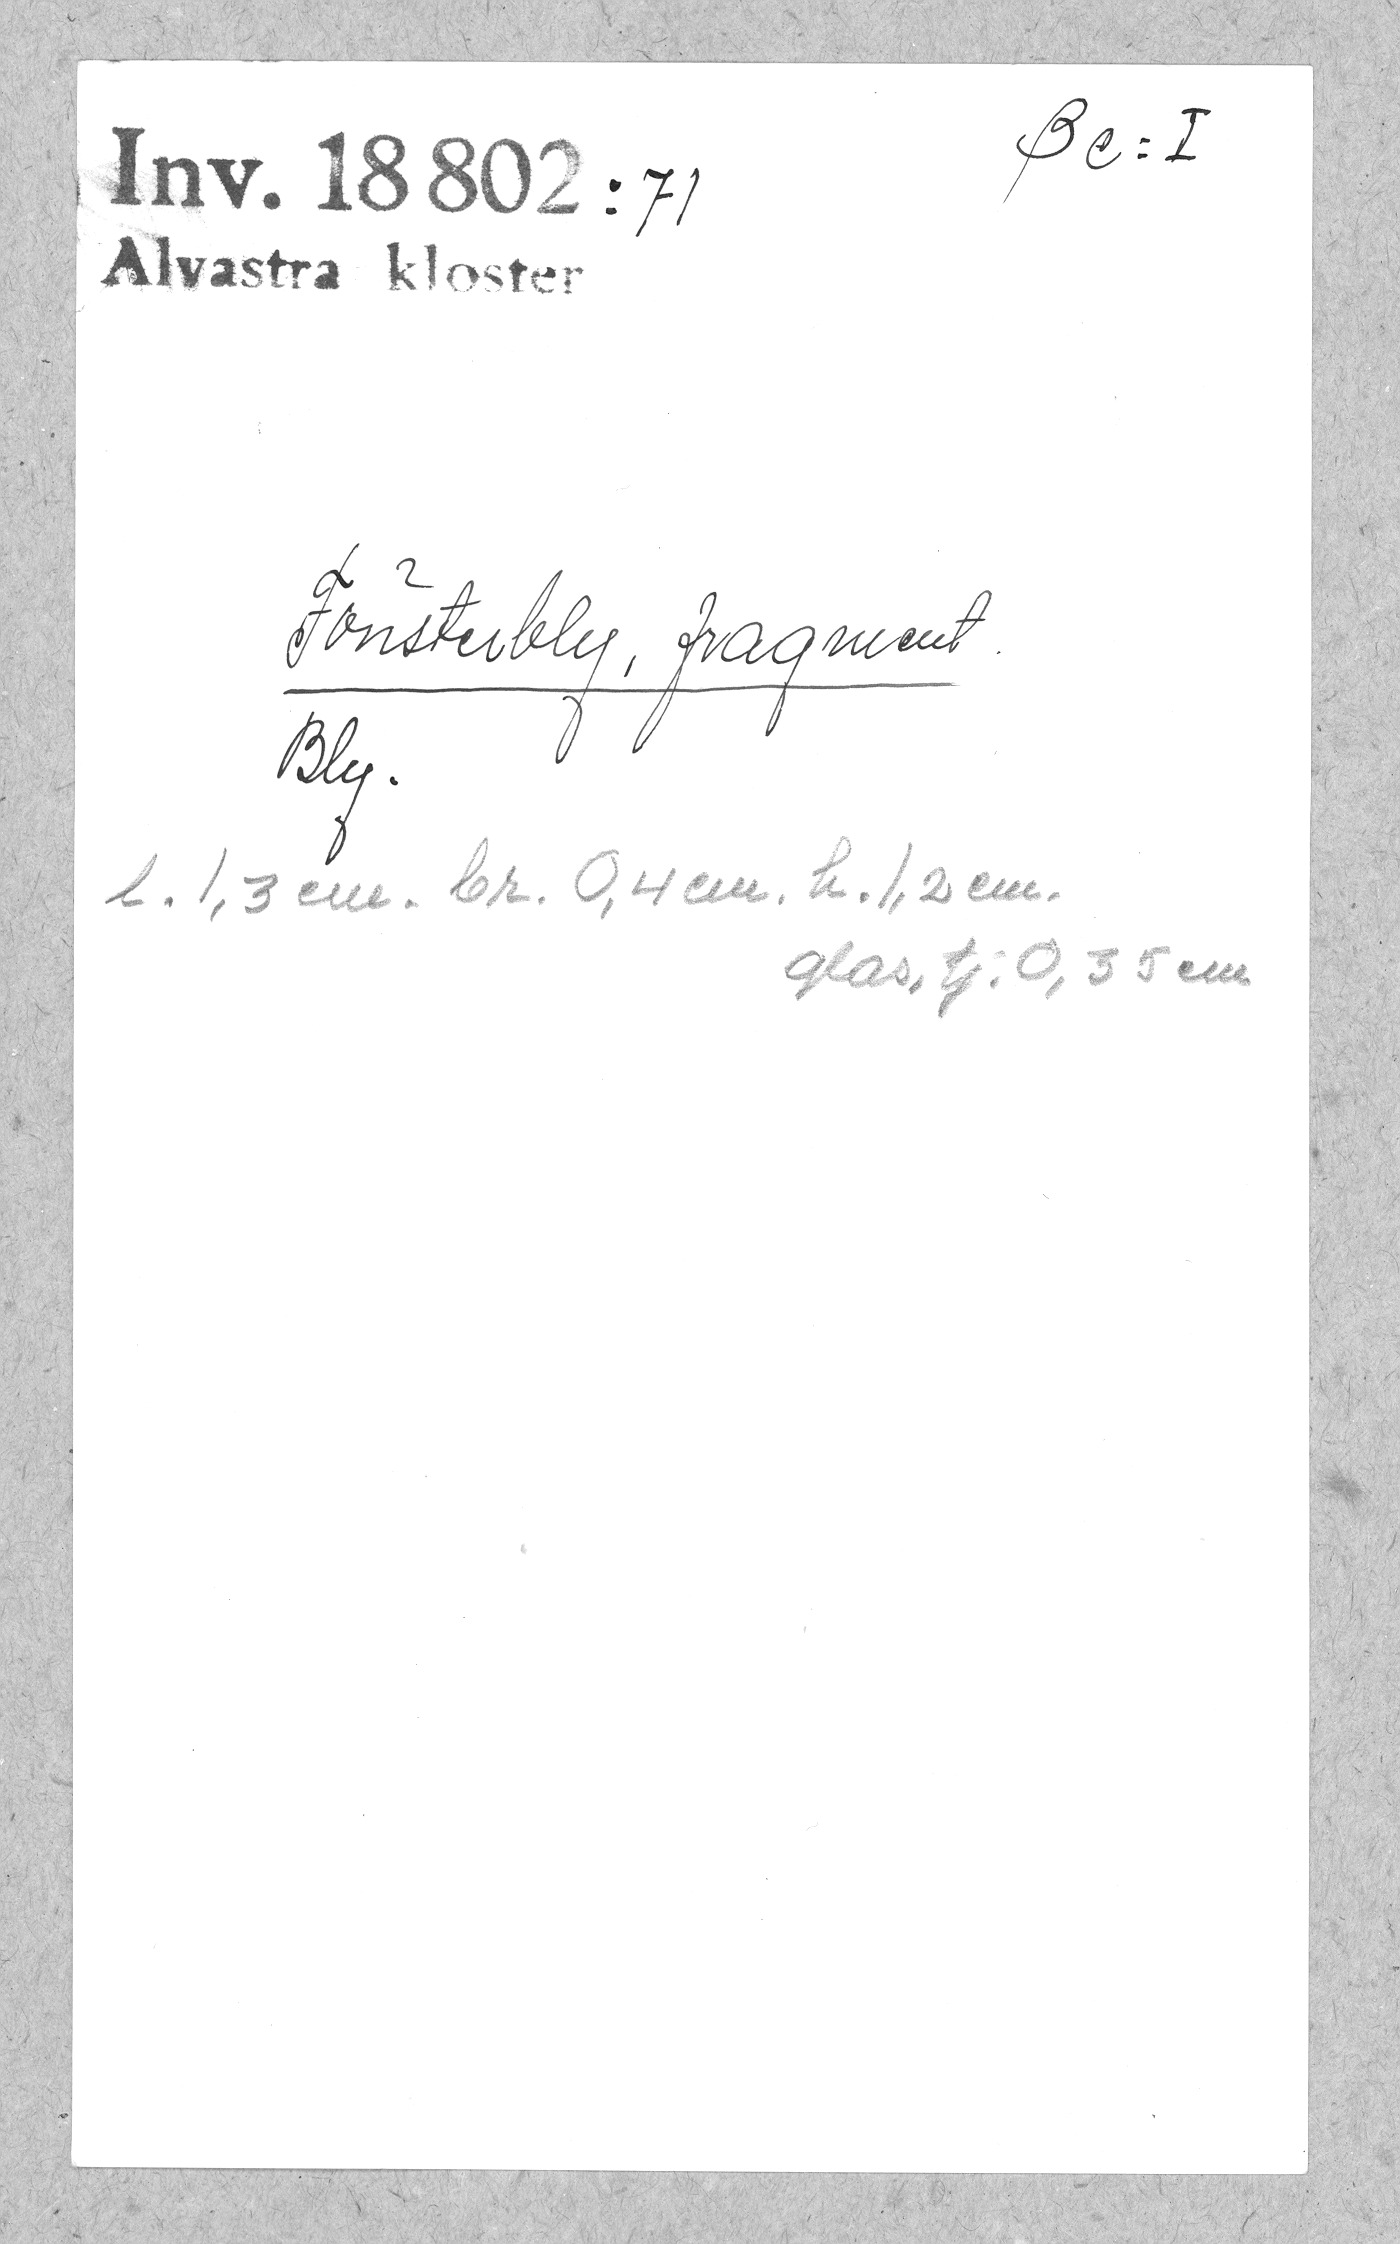 Inv. 18 802 :71
βc:I
Alvastra kloster
Fönsterbly, fragment.
Bly.
l. 1,3 cm. br. 0,4 cm. h. 1,2 cm.
glas, tj: 0,35 cm